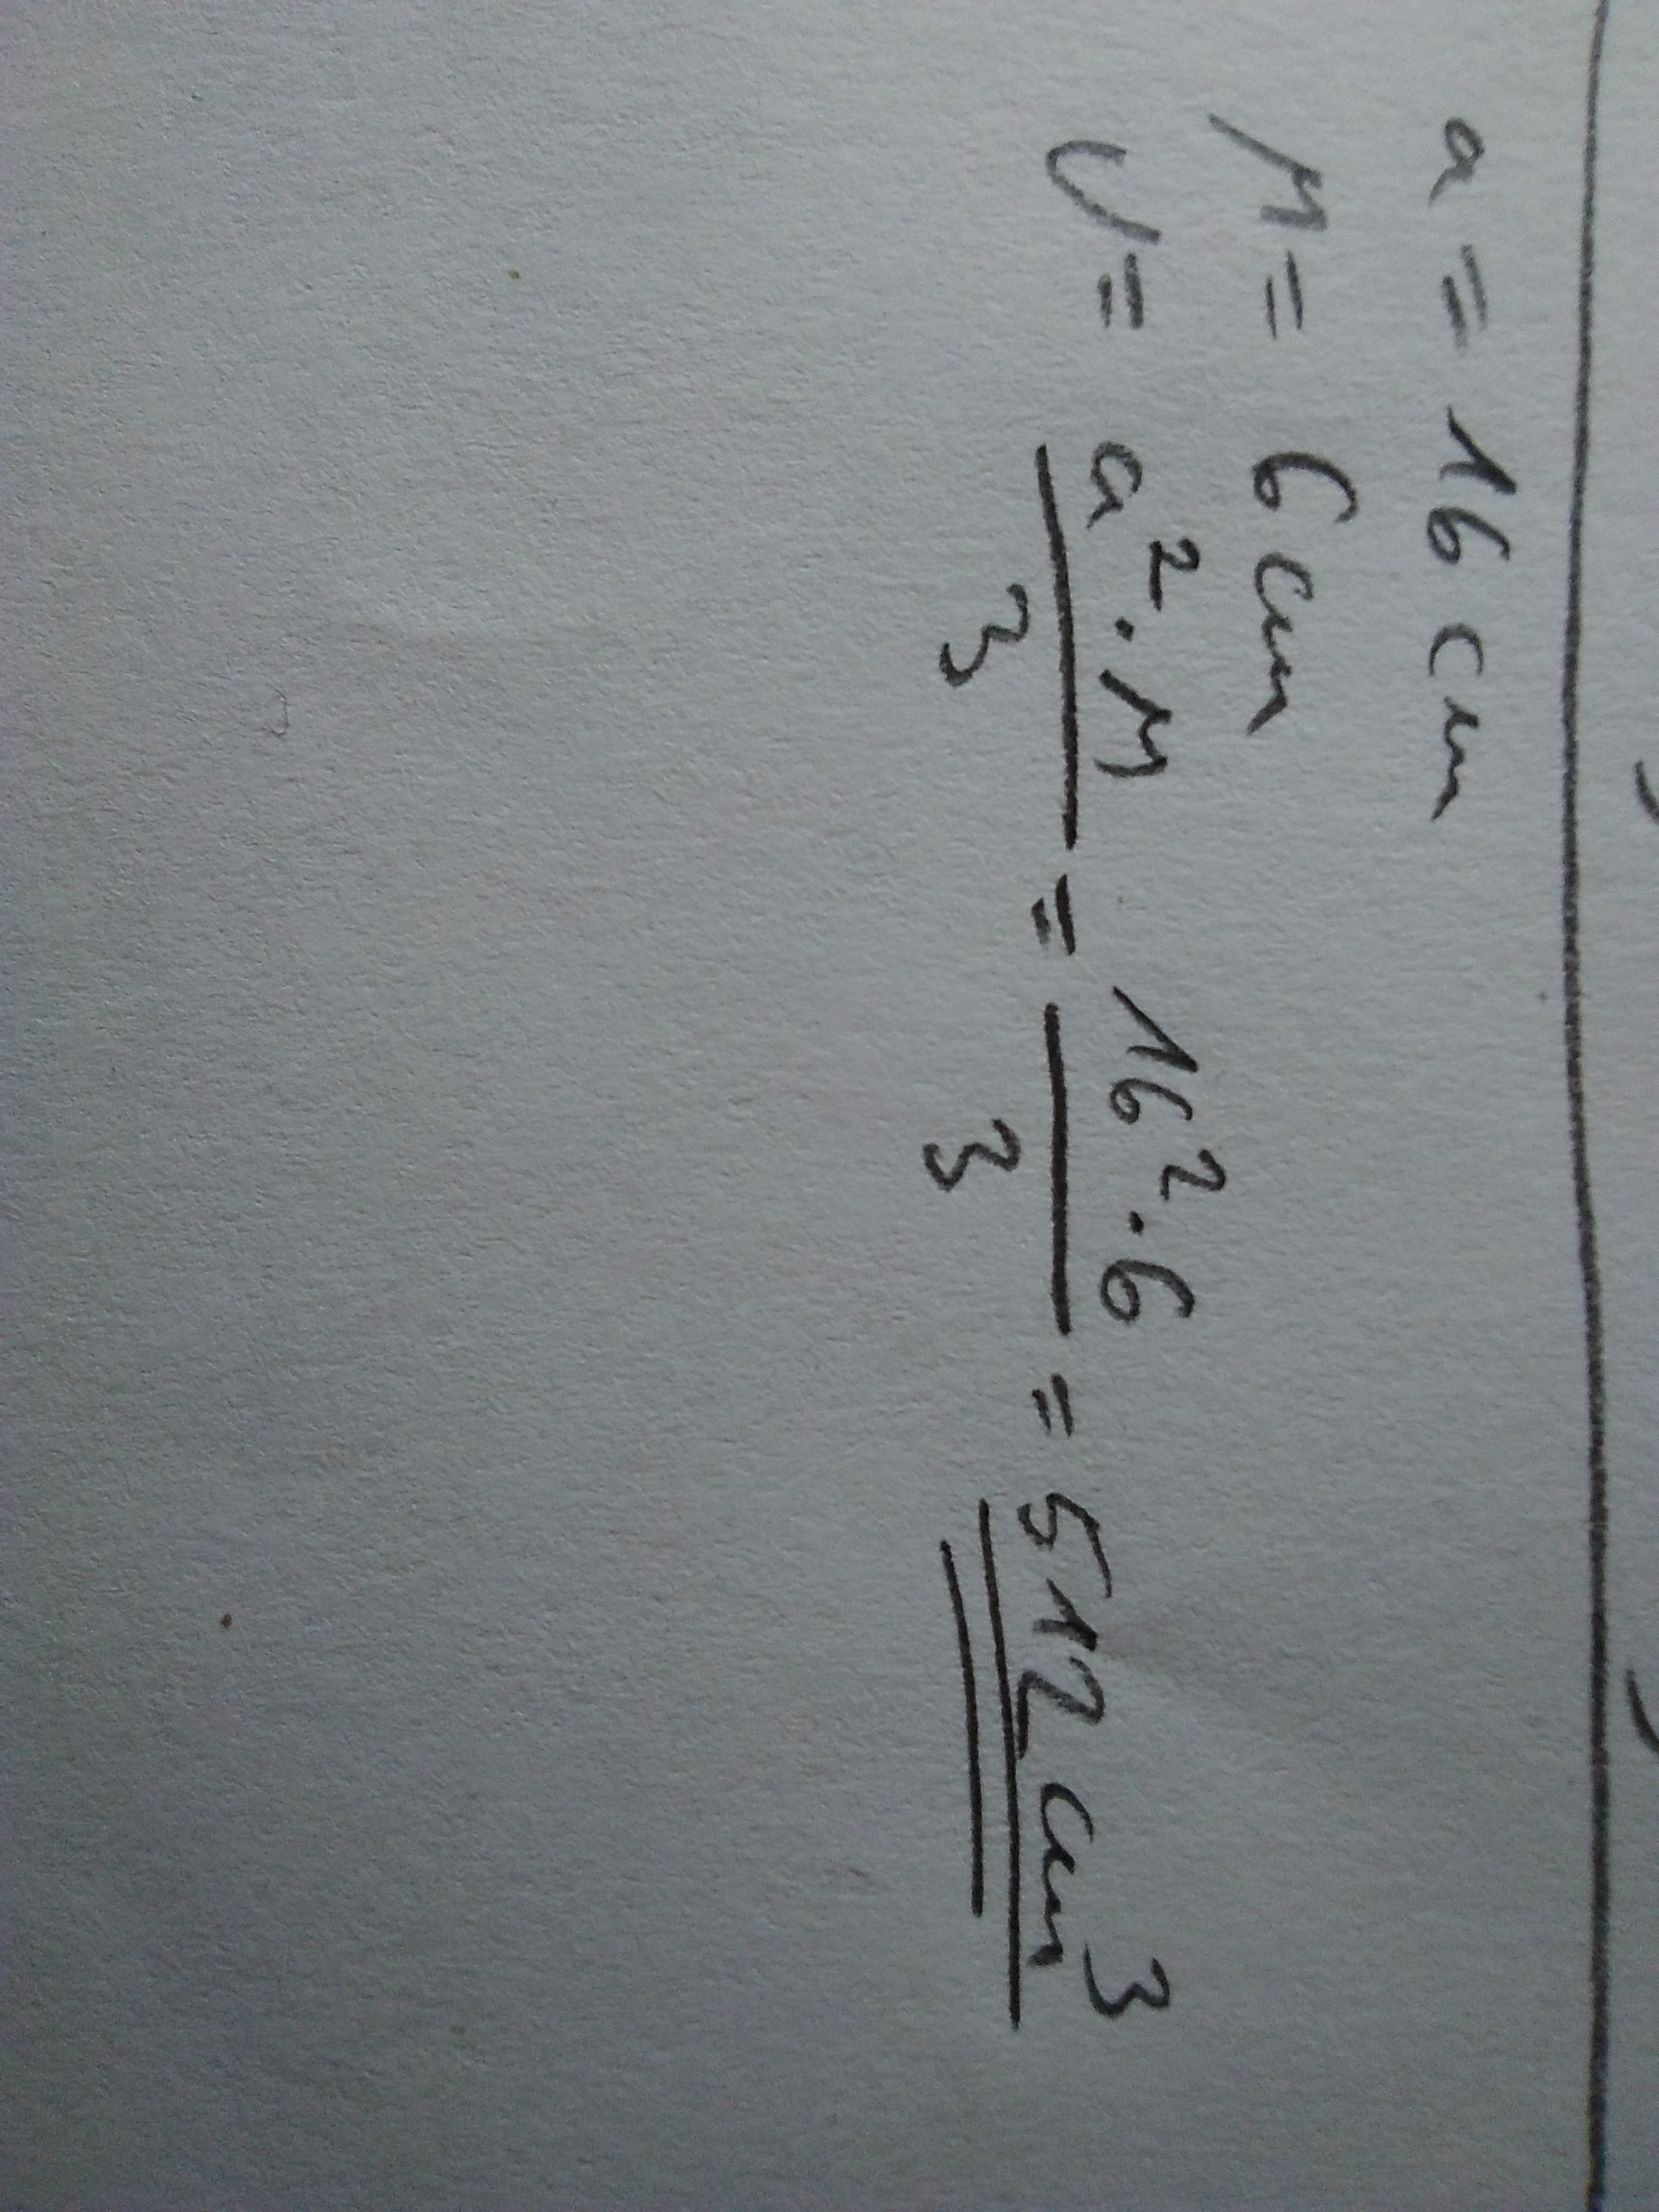 a = 16 cm
M = 6 cm
V = a².M / 3 = 16².6 / 3 = 512 cm³